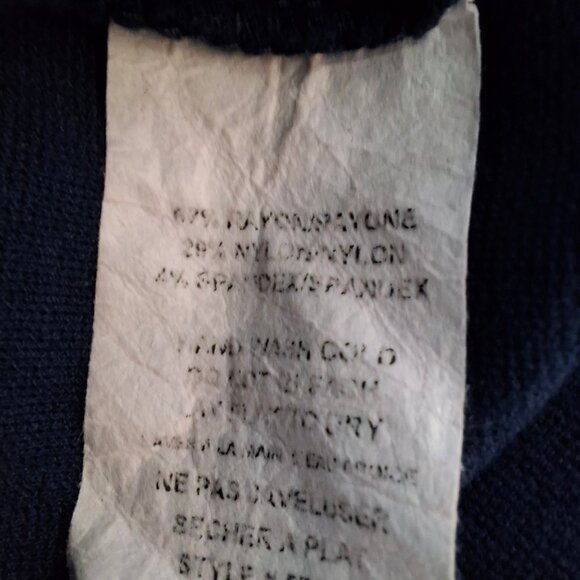 67% RAYON/RAYONNE
29% NYLON/NYLON
4% SPANDEX/SPANDEX
HAND WASH COLD
DO NOT BLEACH
LAY FLAT TO DRY
LAVER A LA MAIN
NE PAS
SECHER A PLAT
STYLE #